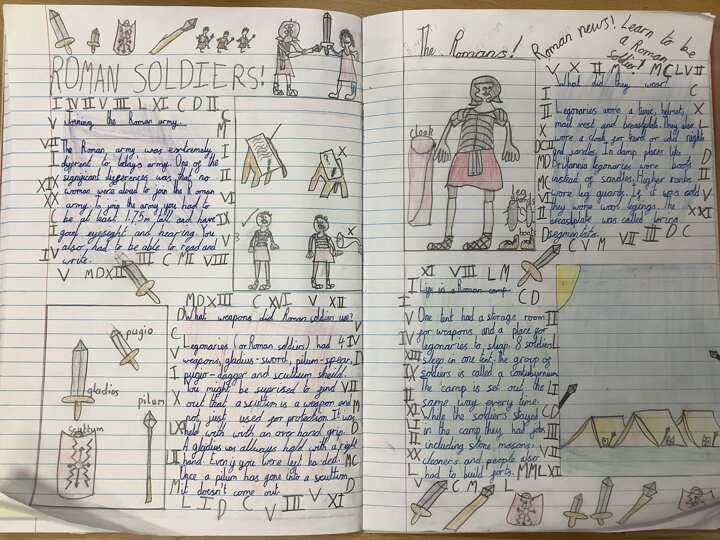 ROMAN SOLDIERS!
I IV II V VIII L XI C D II
Joining the Roman army.
The Roman army was extremely
diffrent to today's army. One of the
significant differences was that no
women were alowed to join the Roman
army. To join the army you had to
be at least 1.75m tall and have
good eyesight and hearing. You
also had to be able to read and
write.
V MDXII III C MII VIII
pugio
gladius
pilum
scuttum
MD XIII C XVI V XII
What weapons did Roman soldiers use?
Legonaries (or Roman soldiers) had 4
weapons, gladius-sword, pilum-spear,
pugio-dagger and scuttum sheild.
You might be suprised to find
out that a scuttum is a weapon and
not just used for protection. It was
held with with an over hand grip.
A gladius was allways held with a right
hand. Even if you were left handed.
Once a pilum has gone into a scuttum
it doesn't come out.
L I D C V III V XI
The Romans!
Roman news! Learn to be
a Roman
Soldier!
cloak
leg
boot
What did they wear?
Legonaries wore a tunic, helmet,
mail vest and breastplate. They also
wore a cloak
and sandles. In damp places like
Britannia legonaries wore boots
instead of sandles. Higher ranks
wore leg guards. If it was cold
they wore wool legings. The
breastplate was called lorica
segmentata.
C V M VII III D C
XI VIII L M
C D
Life in a Roman camp
One tent had a storage room
for weapons and a place for
legonaries to sleap. 8 soldiers
sleep in one tent. the group of
soldiers is called a
The camp is set out the
same way every time.
While the soldiers stayed
in the camp they had jobs
including stone masons,
cleaners and people also
had to build forts.
V C M I L